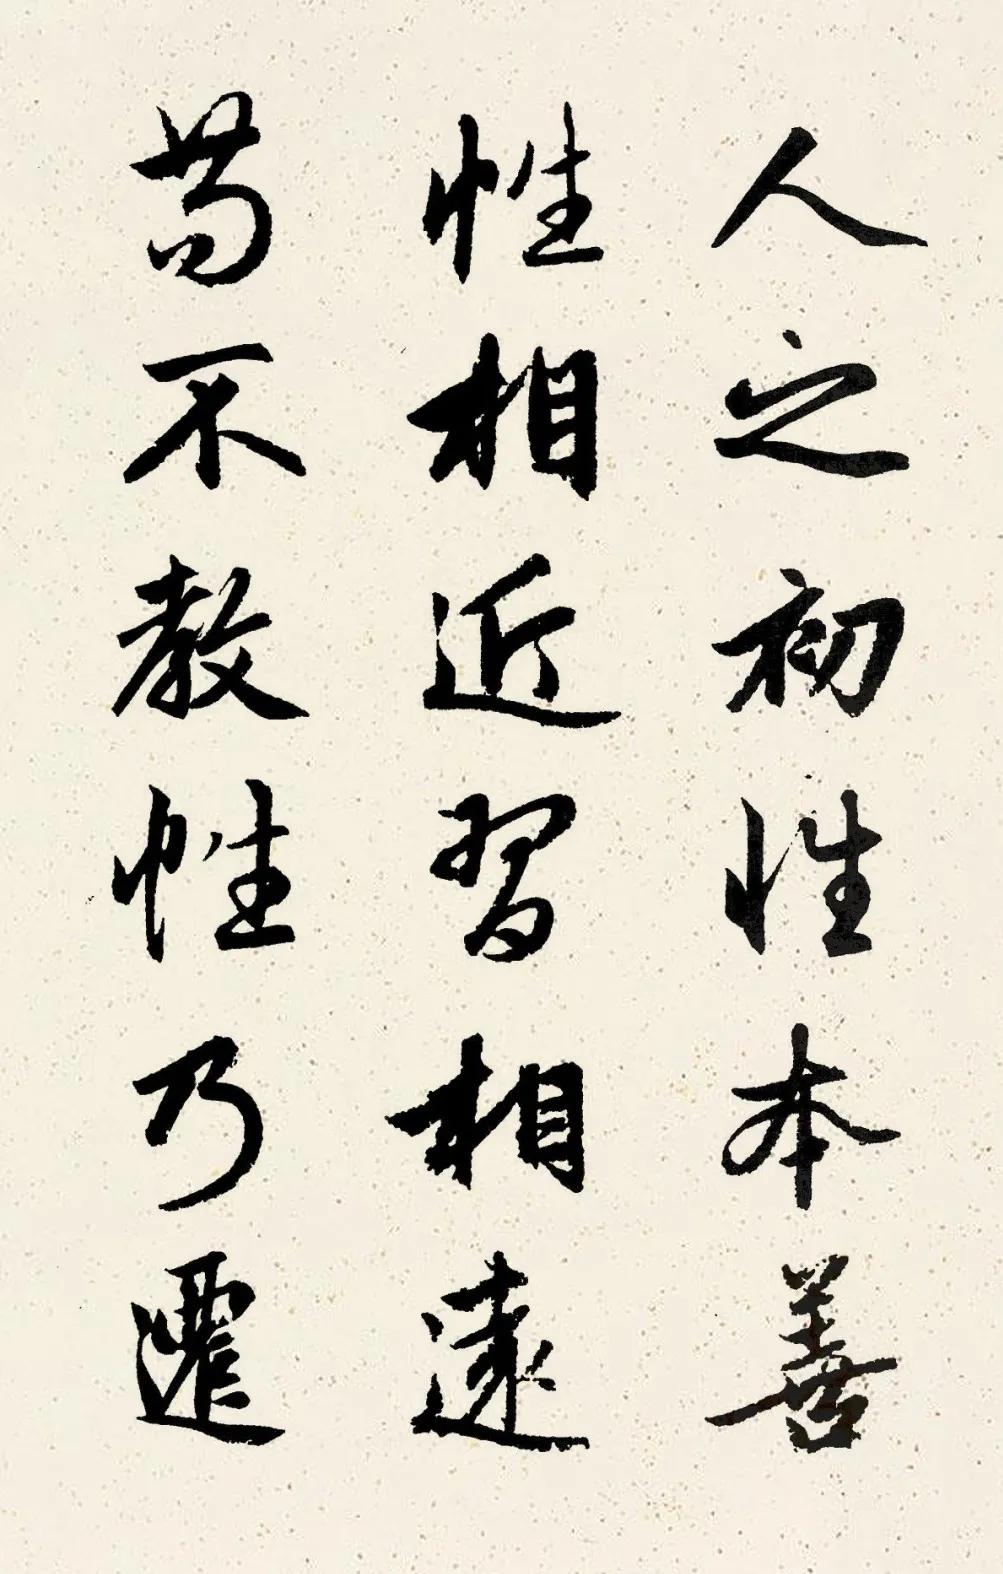 人之初性本善
性相近習相遠
茍不教性乃遷